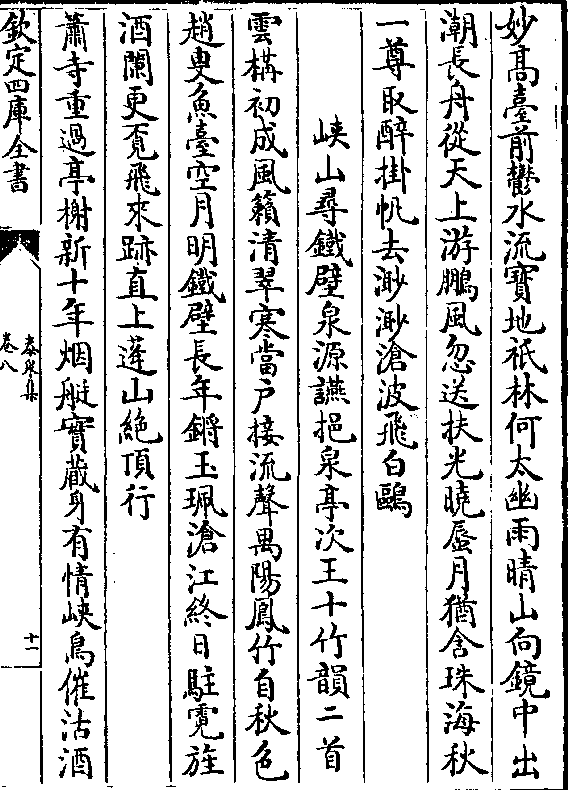 妙髙臺前鬱水流寳地祇林何太幽雨晴山向鏡中出
潮長舟從天上游鵬風忽送扶光曉蜃月猶含珠海秋
一尊取醉掛帆去渺渺滄波飛白鷗
峽山尋鐵壁泉源讌挹泉亭次王十竹韻二首
雲構初成風籟清翠寒當户接流聲禺陽鳳竹自秋色
趙叟魚臺空月明鐵壁長年鏘玉珮滄江終日駐霓旌
酒闌更覔飛來跡直上蓬山絶頂行
蕭寺重過亭榭新十年烟艇寳藏身有情峽鳥催沽酒
欽定四庫全書
泰泉集
卷八
十一